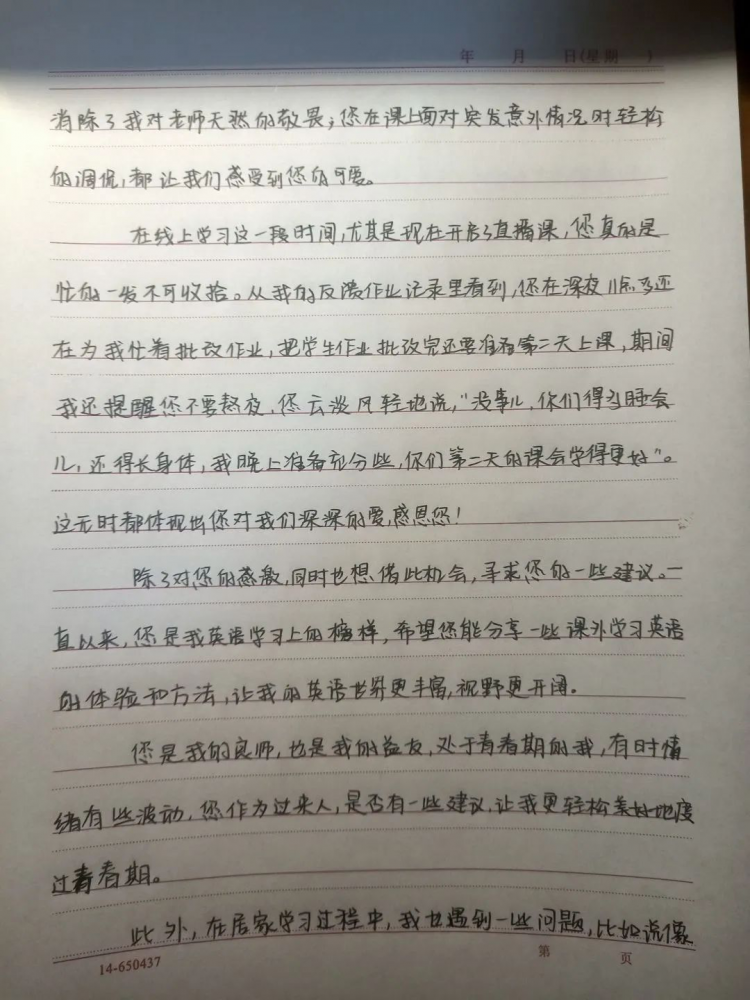 年 月 日(星期 )
消除了我对老师天然的敬畏;您在课上面对突发意外情况时轻松
的调侃,都让我们感受到您的可爱。
在线上学习这一段时间,尤其是现在开启了直播课,您真的是
忙的一发不可收拾。从我的反馈作业记录里看到,您在深夜11点多还
在为我仕着批改作业,把学生作业批改完还要准备第二天上课,期间
我还提醒您不要熬夜,您云淡风轻地说,“没事儿,你们得多睡会
儿,还得长身体,我晚上准备充分些,你们第二天的课会学得更好”。
这无时都体现出您对我们深深的爱,感恩您!
除了对您的感激,同时也想借此机会,寻求您的一些建议。一
直以来,您是我英语学习上的榜样,希望您能分享一些课外学习英语
的体验和方法,让我的英语世界更丰富,视野更开阔。
您是我的良师,也是我的益友,处于青春期的我,有时情
绪有些波动,您作为过来人,是否有一些建议,让我更轻松美好地度
过青春期。
此外,在居家学习过程中,我也遇到一些问题,比如说像
14-650437
第 页